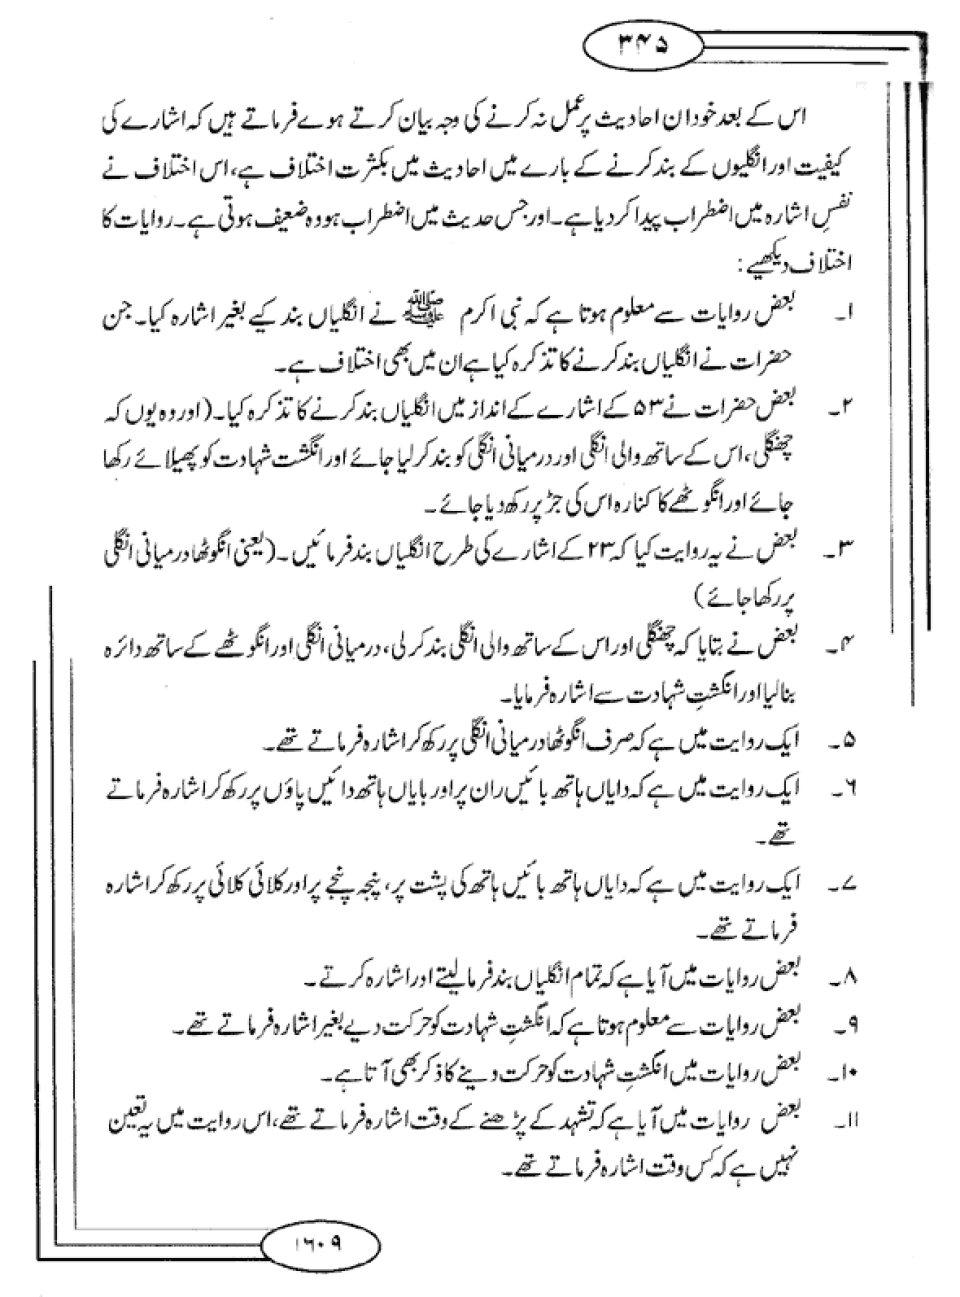 ۳۴۵
اس کے بعد خود ان احادیث پر عمل نہ کرنے کی وجہ بیان کرتے ہوے فرماتے ہیں کہ اشارے کی
کیفیت اور انگلیوں کے بند کرنے کے بارے میں احادیث میں بکثرت اختلاف ہے، اس اختلاف نے
نفسِ اشارہ میں اضطراب پیدا کر دیا ہے۔ اور جس حدیث میں اضطراب ہو وہ ضعیف ہوتی ہے۔ روایات کا
اختلاف دیکھیے :
۱۔ بعض روایات سے معلوم ہوتا ہے کہ نبی اکرم ﷺ نے انگلیاں بند کیے بغیر اشارہ کیا۔ جن
حضرات نے انگلیاں بند کرنے کا تذکرہ کیا ہے ان میں بھی اختلاف ہے۔
۲۔ بعض حضرات نے ۵۳ کے اشارے کے انداز میں انگلیاں بند کرنے کا تذکرہ کیا۔ (اور وہ یوں کہ
چھنگلی، اس کے ساتھ والی انگلی اور درمیانی انگلی کو بند کر لیا جائے اور انگشت شہادت کو پھیلائے رکھا
جائے اور انگوٹھے کا کنارہ اس کی جڑ پر رکھ دیا جائے۔
۳۔ بعض نے یہ روایت کیا کہ ۲۳ کے اشارے کی طرح انگلیاں بند فرمائیں۔ (یعنی انگوٹھا درمیانی انگلی
پر رکھا جائے)
۴۔ بعض نے بتایا کہ چھنگلی اور اس کے ساتھ والی انگلی بند کر لی، درمیانی انگلی اور انگوٹھے کے ساتھ دائرہ
بنا لیا اور انگشتِ شہادت سے اشارہ فرمایا۔
۵۔ ایک روایت میں ہے کہ صرف انگوٹھا درمیانی انگلی پر رکھ کر اشارہ فرماتے تھے۔
۶۔ ایک روایت میں ہے کہ دایاں ہاتھ بائیں ران پر اور بایاں ہاتھ دائیں پاؤں پر رکھ کر اشارہ فرماتے
تھے۔
۷۔ ایک روایت میں ہے کہ دایاں ہاتھ بائیں ہاتھ کی پشت پر، پنجہ پنجے پر اور کلائی کلائی پر رکھ کر اشارہ
فرماتے تھے۔
۸۔ بعض روایات میں آیا ہے کہ تمام انگلیاں بند فرما لیتے اور اشارہ کرتے۔
۹۔ بعض روایات سے معلوم ہوتا ہے کہ انگشتِ شہادت کو حرکت دیے بغیر اشارہ فرماتے تھے۔
۱۰۔ بعض روایات میں انگشتِ شہادت کو حرکت دینے کا ذکر بھی آتا ہے۔
۱۱۔ بعض روایات میں آیا ہے کہ تشہد کے پڑھنے کے وقت اشارہ فرماتے تھے، اس روایت میں یہ تعین
نہیں ہے کہ کس وقت اشارہ فرماتے تھے۔
۱۶۰۹